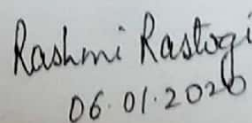 Rashmi Rastogi
06.01.2020